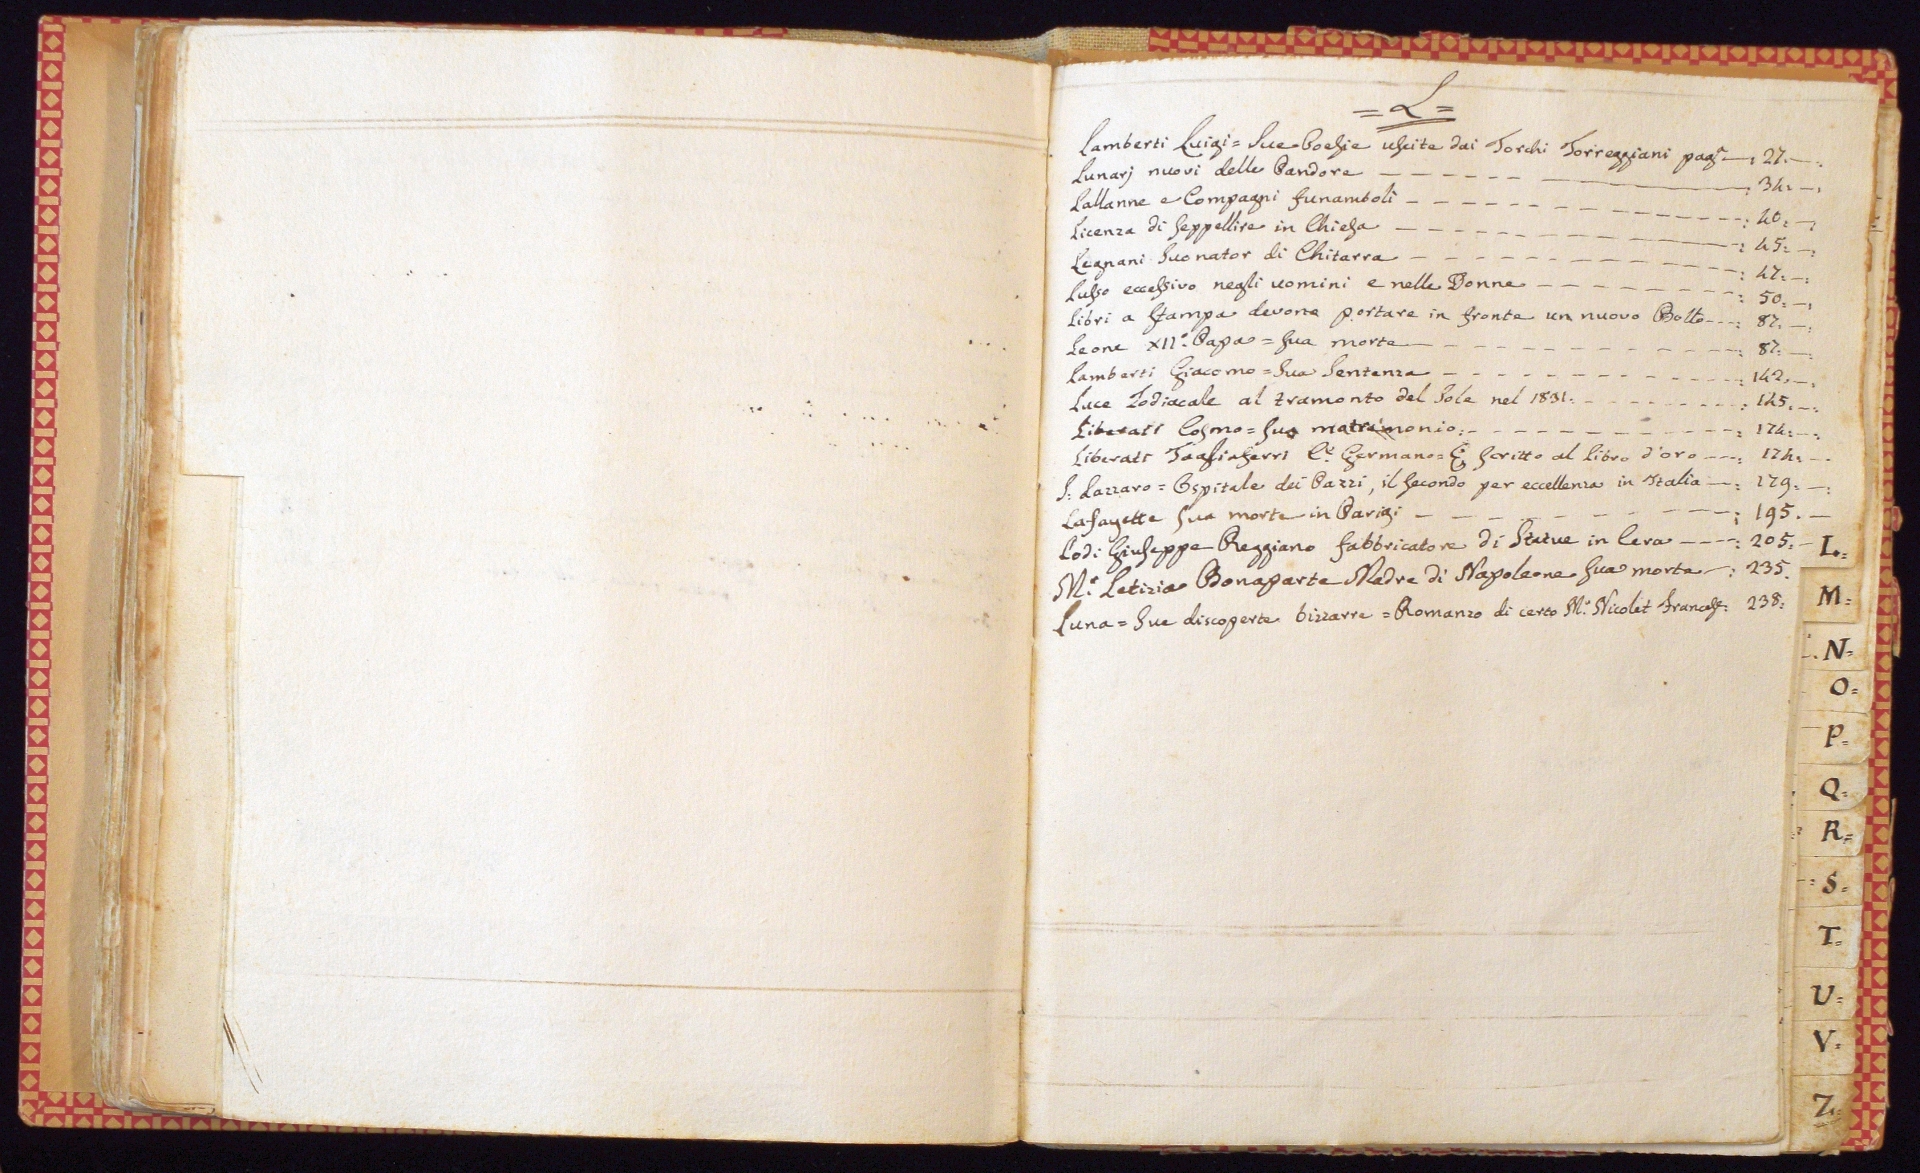 = L =
Lamberti Luigi = Sue Poesie uscite dai Torchi Torreggiani pag.e —: 27. —.
Lunarj nuovi delle Pandore — — — — — —: 34. —.
Lallanne e Compagni funamboli — — — — — —: 40. —.
Licenza di seppellire in Chiesa — — — — — —: 45. —.
Legnani Suonator di Chitarra — — — — — —: 47. —.
Lusso eccessivo negli uomini e nelle Donne — — — — —: 50. —.
Libri a stampa devono portare in fronte un nuovo Bollo — —: 87. —.
Leone XII.o Papa = sua morte — — — — — —: 87. —.
Lamberti Giacomo = Sua Sentenza — — — — — —: 142. —.
Luce Zodiacale al tramonto del Sole nel 1831. — — — — —: 145. —.
Liberati Cosmo = suo matrimonio. — — — — — —: 174. —.
Liberati Tagliaferri Germano = scritto al libro d'oro — —: 174. —
S. Lazzaro = Ospitale dei Pazzi, il secondo per eccellenza in Italia —: 179. —.
Lafayette sua morte in Parigi — — — — — —: 195. —
Lodi Giuseppe Reggiano fabbricatore di Statue in Cera — — —: 205. —
M.e Letizia Bonaparte Madre di Napoleone sua morte —: 235.
Luna = Sue discoperte bizzarre = Romanzo di certo M.r Nicolet Frances: 238.
L.=
M=
N=
O=
P=
Q=
R=
S=
T=
U=
V=
Z=